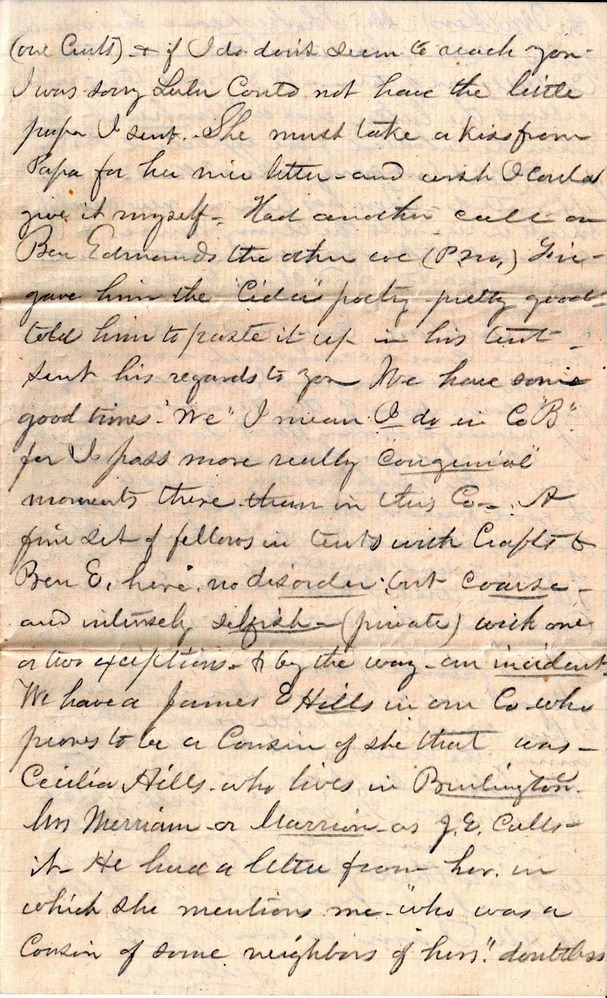 (one Cent) & if I do don't seem to reach you -
I was sorry Lulu Could not have the little
paper I sent. She must take a kiss from
Papa for her nice letter - and wish I could
give it myself - Had another call on
Ben Edmunds the other eve (P.m.)
gave him the "Cider" poetry - pretty good -
told him to paste it up in his tent -
sent his regards to you We have some
good times. "We" I mean I do in Co "B".
for I pass more really "congenial"
moments there than in this Co -. A
fine set of fellows in tents with Crafts &
Ben E, here, no disorder. but coarse -
and intensely selfish - (private) with one
or two exceptions. & by the way - an incident.
We have a James E Hills in our Co. who
proves to be a Cousin of she that was -
Cecilia Hills - who lives in Burlington.
Mrs Merriam - or Marrion - as J.E. Calls -
it - He had a letter from her. in
which she mentions me - "who was a
Cousin of some neighbors of hers". doubtless